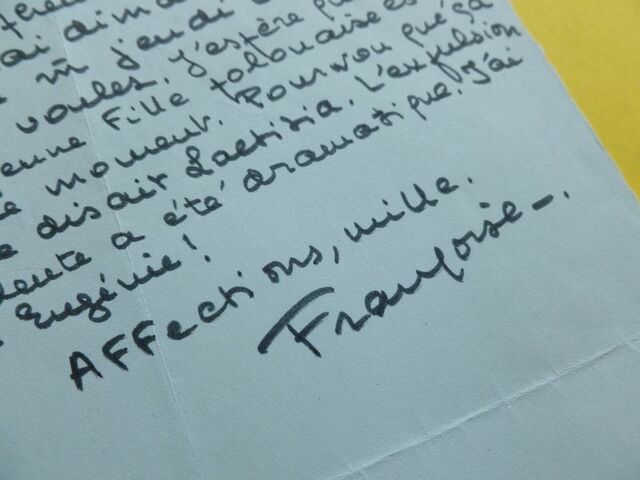 ai dima
m jeudi
voulez. J'espère
eune fille toulousaine es
moment. Pourvou que ça
disait Laetitia. L'expulsion
dente a été dramatique. J'ai
Eugénie!
Affections, mille.
Françoise_.